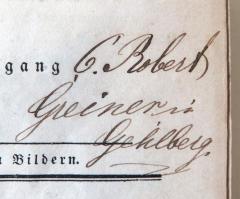 gang C. Robert
Greiner in
Gehlberg.
n Bildern.